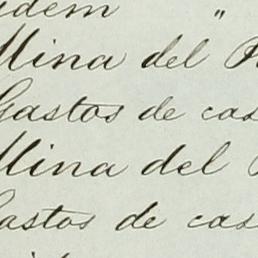 idem "
Mina del
Gastos de cas
Mina del
Gastos de cas